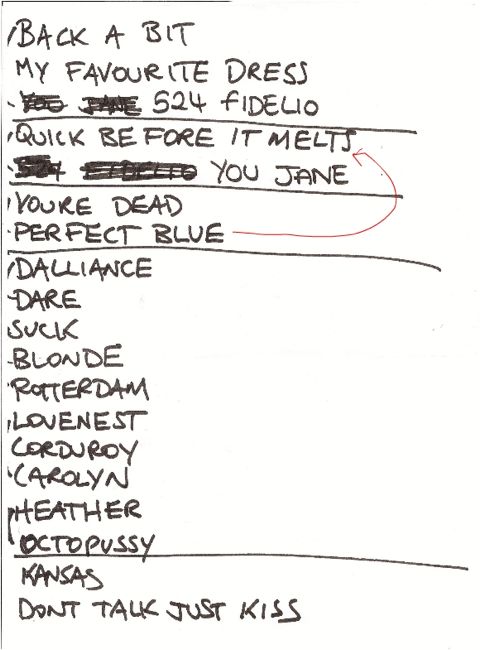 BACK A BIT
MY FAVOURITE DRESS
YOU JANE 524 FIDELIO
QUICK BEFORE IT MELTS
524 FIDELIO YOU JANE
YOURE DEAD
PERFECT BLUE
DALLIANCE
DARE
SUCK
BLONDE
ROTTERDAM
LOVENEST
CORDUROY
CAROLYN
HEATHER
OCTOPUSSY
KANSAS
DONT TALK JUST KISS